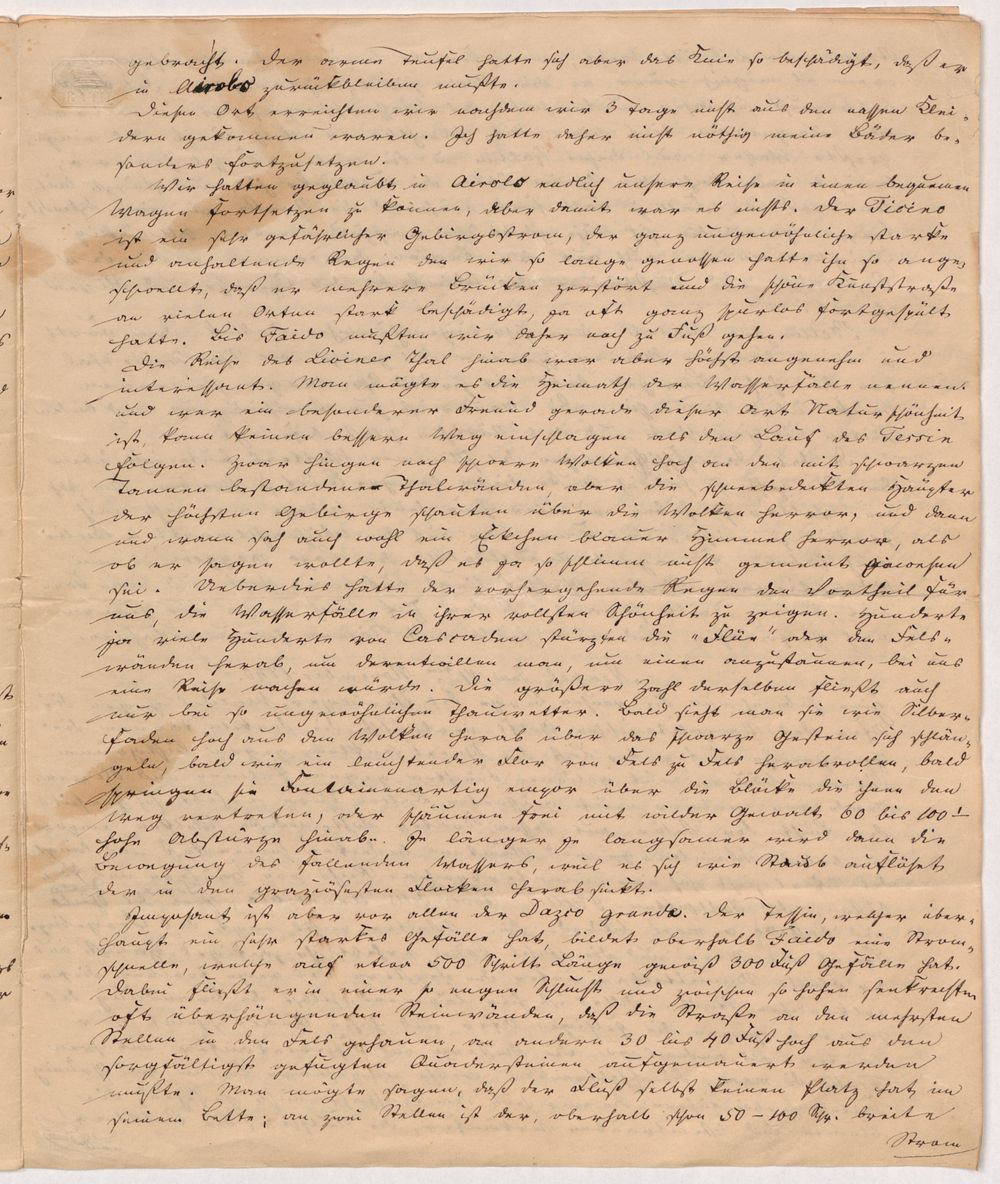 gebracht. Der arme Teufel hatte sich aber das Knie so beschädigt, daß er
in Airolo zurückbleiben mußte.
Diesen Ort erreichten wir nachdem wir 3 Tage nicht aus den nassen Klei-
dern gekommen waren. Ich hatte daher nicht nöthig meine Bäder be-
sonders fortzusetzen.
Wir hatten geglaubt in Airolo endlich unsere Reise in einen bequemen
Wagen fortsetzen zu können, aber damit war es nichts. Der Ticino
ist ein sehr gefährlicher Gebirgsstrom, der ganz ungewöhnliche starke
und anhaltende Regen den wir so lange genossen hatte ihn so ange-
schwellt, daß er mehrere Brücken zerstört und die schöne Kunststraße
an vielen Orten stark beschädigt, ja oft ganz spurlos fortgespült
hatte. Bis Faido mußten wir daher noch zu Fuß gehen.
Die Reise des Liviner Thal hinab war aber höchst angenehm und
interessant. Man mögte es die Heimath der Wasserfälle nennen.
und wer ein besonderer Freund gerade dieser Art Naturschönheit
ist, kann keinen bessern Weg einschlagen als den Lauf des Tessin
folgen. Zwar hingen noch schwere Wolken hoch an den mit schwarzen
Tannen bestandenen Thalwänden, aber die schneebedeckten Häupter
der höchsten Gebirge schauten über die Wolken hervor, und dann
und wann sah auch wohl ein Eckchen blauer Himmel hervor, als
ob er sagen wollte, daß es ja so schlimm nicht gemeint gewesen
sei. Ueberdies hatte der vorhergehende Regen den Vortheil für
uns, die Wasserfälle in ihrer vollsten Schönheit zu zeigen. Hunderte
ja viele Hunderte von Cascaden stürzten die "Flüe" oder den Fels-
wänden herab, um derentwillen man, um einen anzustaunen, bei uns
eine Reise machen würde. Die größere Zahl derselben fließt auch
nur bei so ungewöhnlichen Thauwetter. Bald sieht man sie wie Silber-
faden hoch aus den Wolken herab über das schwarze Gestein sich schlän-
geln, bald wie ein leuchtender Flor von Fels zu Fels herabrollen, bald
springen sie Fontainenartig empor über die Blöcke die ihnen den
Weg vertreten, oder schäumen frei mit wilder Gewalt 60 bis 100'
hohe Abstürze hinab. Je länger je langsamer wird dann die
Bewegung des fallenden Wassers, weil es sich wie Staub auflöset
der in den graziösesten Flocken herab sinkt.
Imposant ist aber vor allen der Dazio grande. Der Tessin, welcher über-
haupt ein sehr starkes Gefälle hat, bildet oberhalb Faido eine Strom-
schnelle, welche auf etwa 500 Schritt Länge gewiß 300 Fuß Gefälle hat.
Dabei fließt er in einer so engen Schlucht und zwischen so hohen senkrechten
oft überhängenden Steinwänden, daß die Straße an den mehrsten
Stellen in den Fels gehauen, an andern 30 bis 40 Fuß hoch aus den
sorgfältigst gefugten Quadersteinen aufgemauert werden
mußte. Man mögte sagen, daß der Fluß selbst keinen Platz hat in
seinem Bette; an zwei Stellen ist der, oberhalb schon 50-100 Schr. breite
Strom